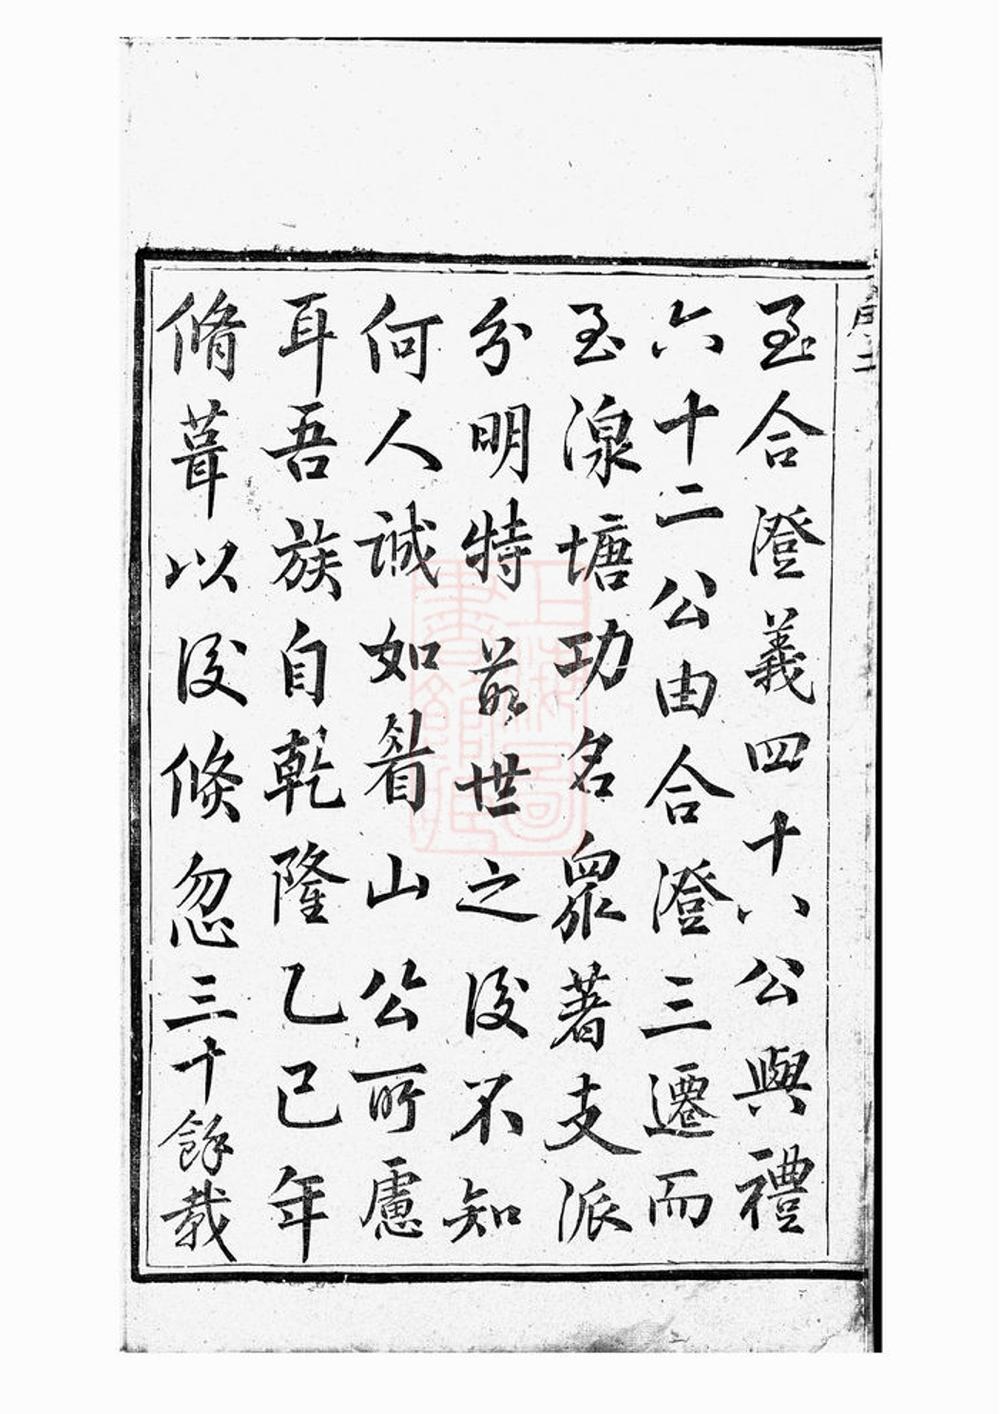 至合澄義四十八公與禮
六十二公由合澄三遷而
至湶塘功名眾著支派
分明特數世之後不知
何人誠如眉山公所慮
耳吾族自乾隆乙巳年
脩葺以後倏忽三十餘載